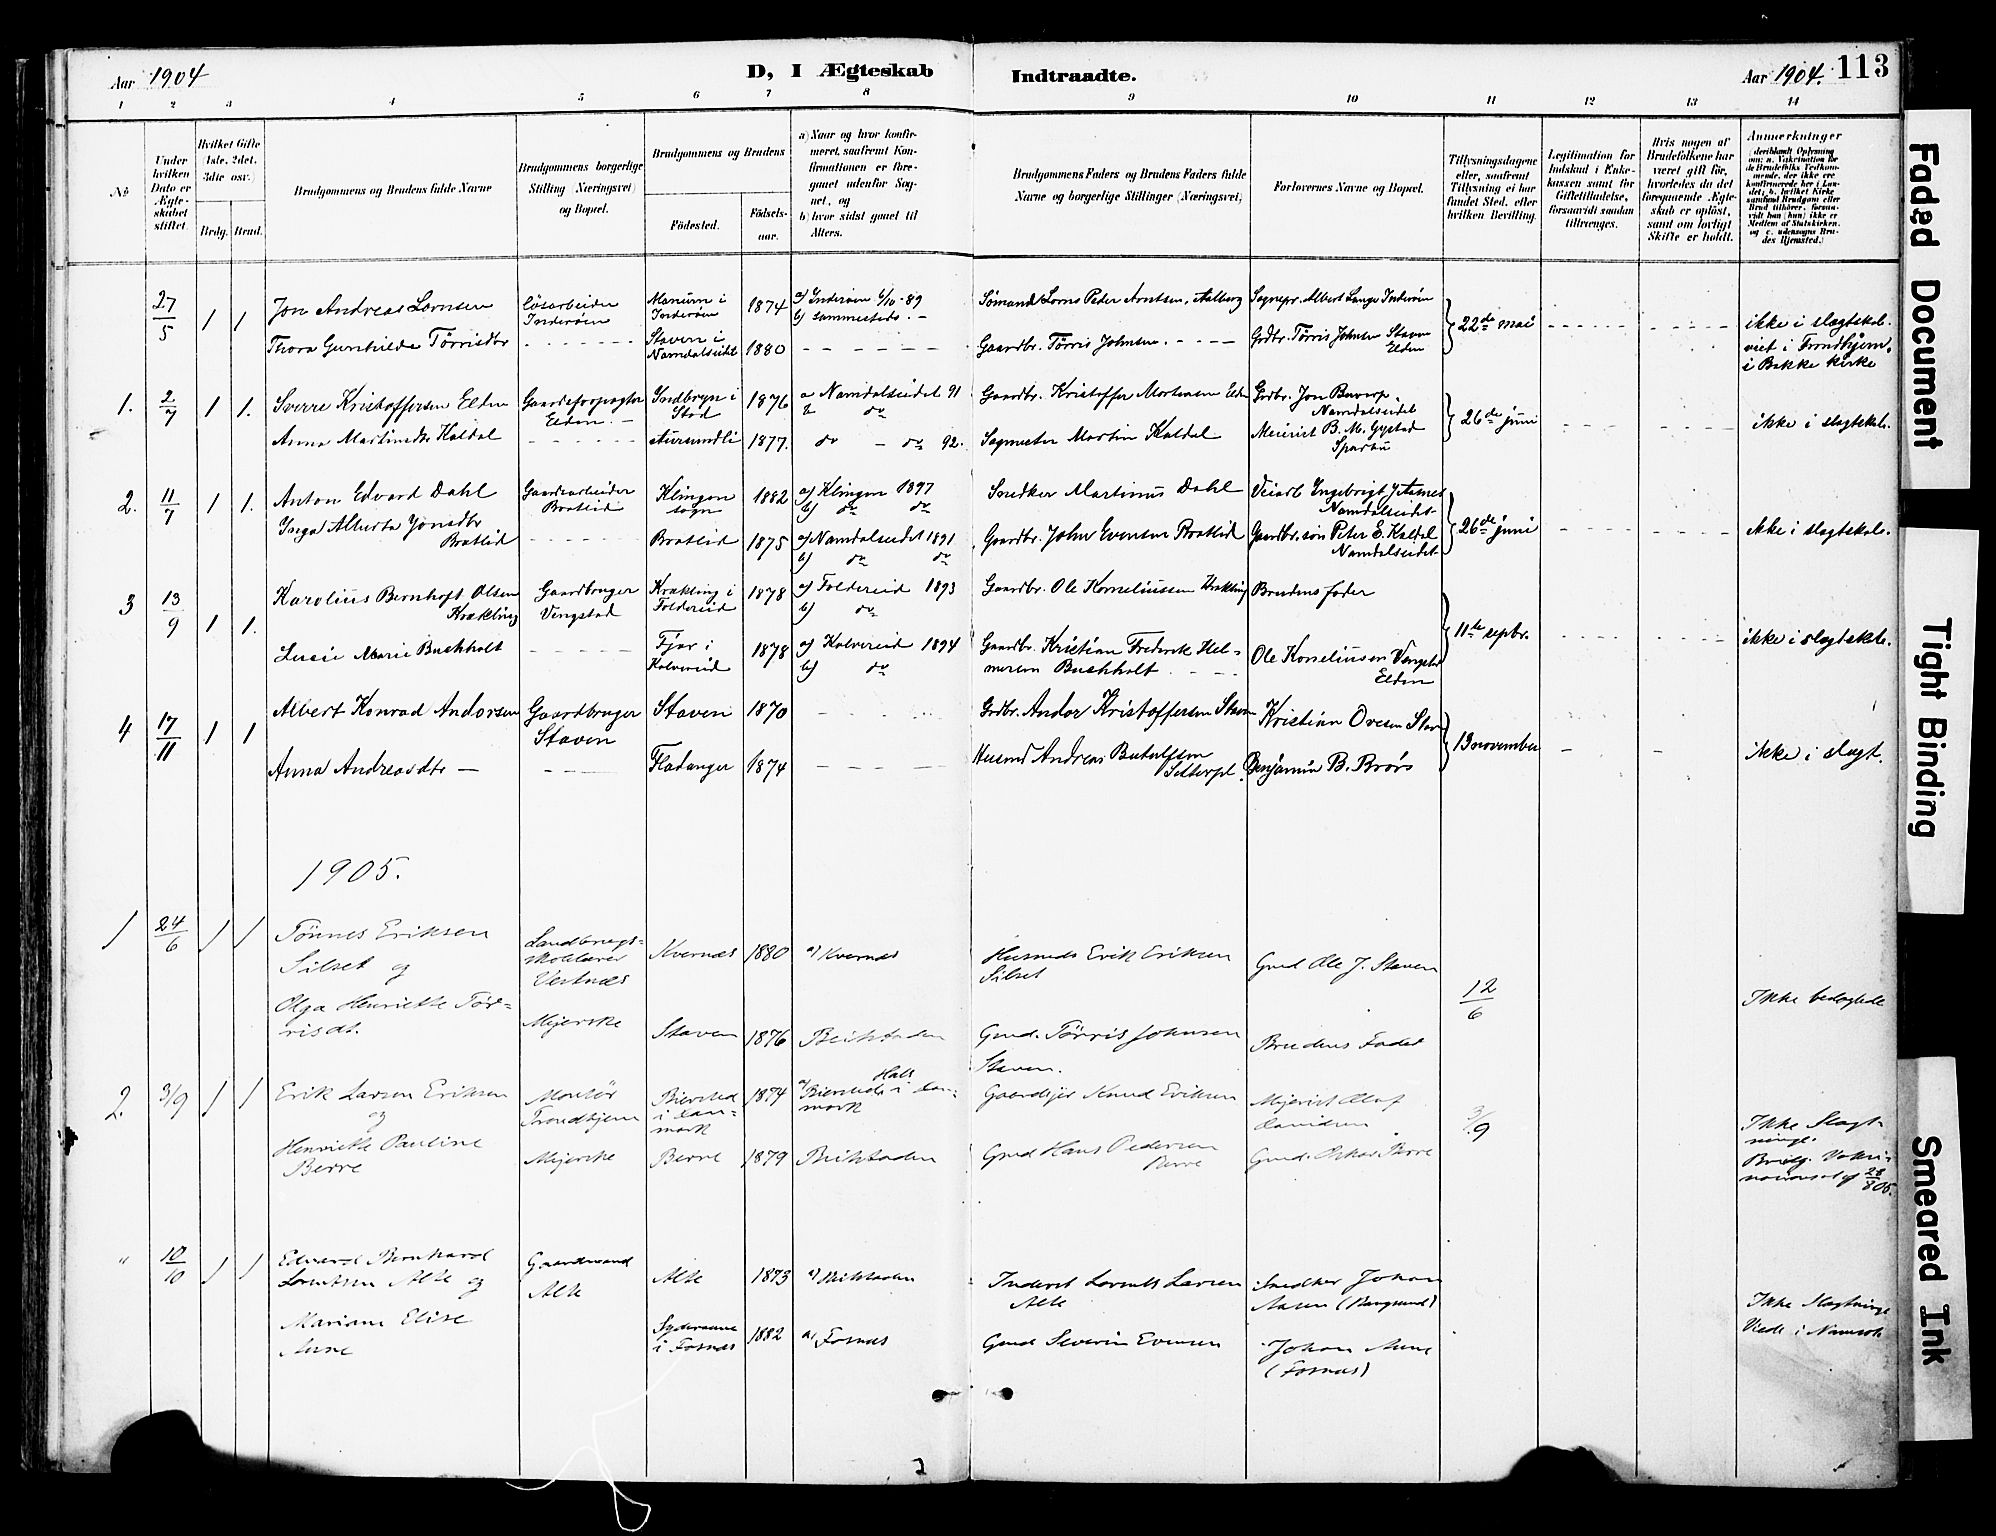 Aar 1904
D, I Ægteskab
Indtraadte.
Aar 1904. 113
1 2 3 4 5 6 7 8 9 10 11 12 13 14
No
Under hvilken Dato er Ægteskabet stiftet
Hvilket Gifte (1ste, 2det, 3die osv.)
Brdg. Brud.
Brudgommens og Brudens fulde Navne
Brudgommens borgerlige Stilling (Næringsvei) og Bopæl.
Brudgommens og Brudens
Födested.
Födsels-aar.
a) Naar og hvor konfirmeret, saafremt Konfirmationen er foregaaet udenfor Sognet, og
b) hvor sidst gaaet til Alters.
Brudgommens Faders og Brudens Faders fulde Navne og borgerlige Stillinger (Næringsvei)
Forlovernes Navne og Bopæl.
Tillysningsdagene eller, saafremt Tillysning ei har fundet Sted, efter hvilken Bevilling.
Legitimation for Indskud i Enkekassen samt for Giftetilladelse, forsaavidt saadan tiltrænges.
Hvis nogen af Brudefolkene har været gift før, hvorledes da det foregaaende Ægteskab er opløst, samt om lovligt Skifte er holdt.
Anmerkninger
27/5 1 1 Jon Andreas Lornsen Løsarbeider Inderøen Marium i Inderøen 1874 a) Inderøen 6/10-89 b) sammesteds. – Sømand Lorns Peder Arntsen, Aalberg Sognepr. Albert Lange Inderøen
Thora Gunhilde Tørrisdtr Staven i Namdalseidet 1880 Gaardbr. Tørris Johnsen Grdbr. Tørris Johnsen Staven Elden
22de mai
ikke i slægtskab. viet i Trondhjem, i Bakke kirke
1. 2/7 1 1. Sverre Kristoffersen Elden Elden. – Indbryn i Stod 1876 a Namdalseidet 91 b do Gaardbr. Kristoffer Mortensen Elden Grdbr. Jon Buvarp, Namdalseidet
Anna Martinsdtr Kaldal Aursundli 1877. do – do 92. Sagmester Martin Kaldal Meierist B. M. Gystad Sparbu
26de juni
ikke i slægtskab.
2. 11/7 1 1. Anton Edvard Dahl Gaardsarbeider Bratlid Klingen sogn 1882 a) Klingen 1897 b) do do Snedker Martinus Dahl Veiarb Ingebrigt J. Aasnes Namdalseidet
Inga Alberta Jonsdtr Bratlid Bratlid 1875 a) Namdalseidet 1891 b) do do Gaardbr. John Evensen Bratlid Gaardbr. søn Peter E. Kaldal Namdalseidet
26de juni
ikke i slægtskab.
3 13/9 1 1. Karolius Bernhoft Olsen Krækling Gaardbruger Vengstad Krækling i Foldereid 1878 a) Foldereid 1893 b) do Gaardbr. Ole Korneliussen Krækling Brudens fader
Lusie Marie Buchholt Fjær i Kolvereid 1878 a) Kolvereid 1894 b) do Gaardbr. Kristian Frederik Helmersen Buchholt Ole Korneliussen Vengstad Elden
11te septbr.
ikke i slægtskb.
4 17/11 1 1 Albert Konrad Andorsen Gaardbruger Staven Staven 1870 Grdbr. Andor Kristoffersen Staven Kristian Ovesen Stav
Anna Andreasdtr – Fladanger 1874 Husmd Andreas Setterpl. Benjamin B. Brørs
13 november
ikke i slægt.
1905.
1 24/6 1 1 Tönnes Eriksen Silset og Landbrugsskolelærer Vestnæs Kvernæs 1880 a) Kvernæs Husmds Erik Eriksen Silset Gmd Ole J. Staven
Olga Henriette Tørrisdt. Mejerske Staven 1876 Beitstaden Gmd. Tørris Johnsen Staven. Brudens Fader
12/6
Ikke beslægtede
2. 3/9 1 1 Erik Larsen Eriksen og Montör Trondhjem Biersted i Danmark 1874 a) Biersted Hals i Danmark Gaardejer Knud Eriksen Mejerist Olaf Davidsen
Henriette Pauline Berre Mejerske Berre 1879 Beitstaden Gmd Hans Pedersen Berre Gmd. Oskar Berre
3/9
Ikke Slægtninge. Brudg. 28/8 05.
" 10/10 1 1 Edvard Bernhard Lorentsen Alte og Gaardmand Alte Alte 1873 a) Beitstaden Inderst Lorents Larsen Alte Snedker Johan Aasen (Bangsund)
Mariane Elise Aune i Fosnæs 1882 a) Fosnæs Gmd Severin Evensen Johan Aune (Fosnæs)
Ikke Slægtninge Viede i Namsos
Faded Document
Tight Binding
Smeared Ink